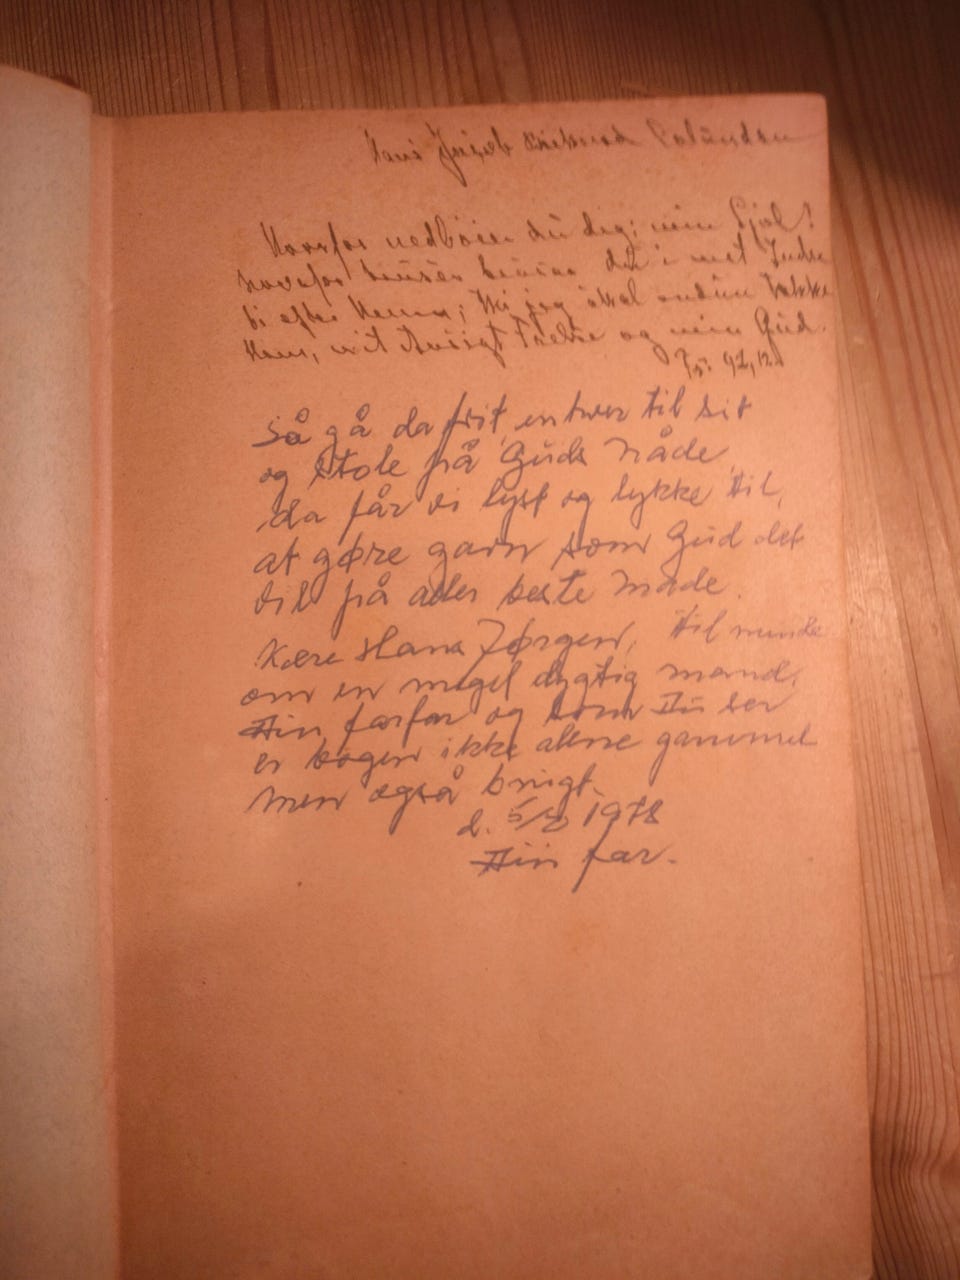 Hans Jacob
Hvorfor nedbøier du dig, min Sjæl!
hvorfor bruser du i mit Indre
bi efter Herren; thi jeg skal endnu takke
Ham, mit Ansigts Frelse og min Gud.
Ps. 42,12.
Så gå da frit, enhver til sit
og stole på Guds Nåde,
da får vi lyst og lykke til,
at gøre gavn som Gud det
vil på aller beste Måde.
Kære Hans Jørgen, til minde
om en meget dygtig mand,
Din farfar og som Du ser
er bogen ikke alene gammel
men også brugt.
d. 1978
Din far.